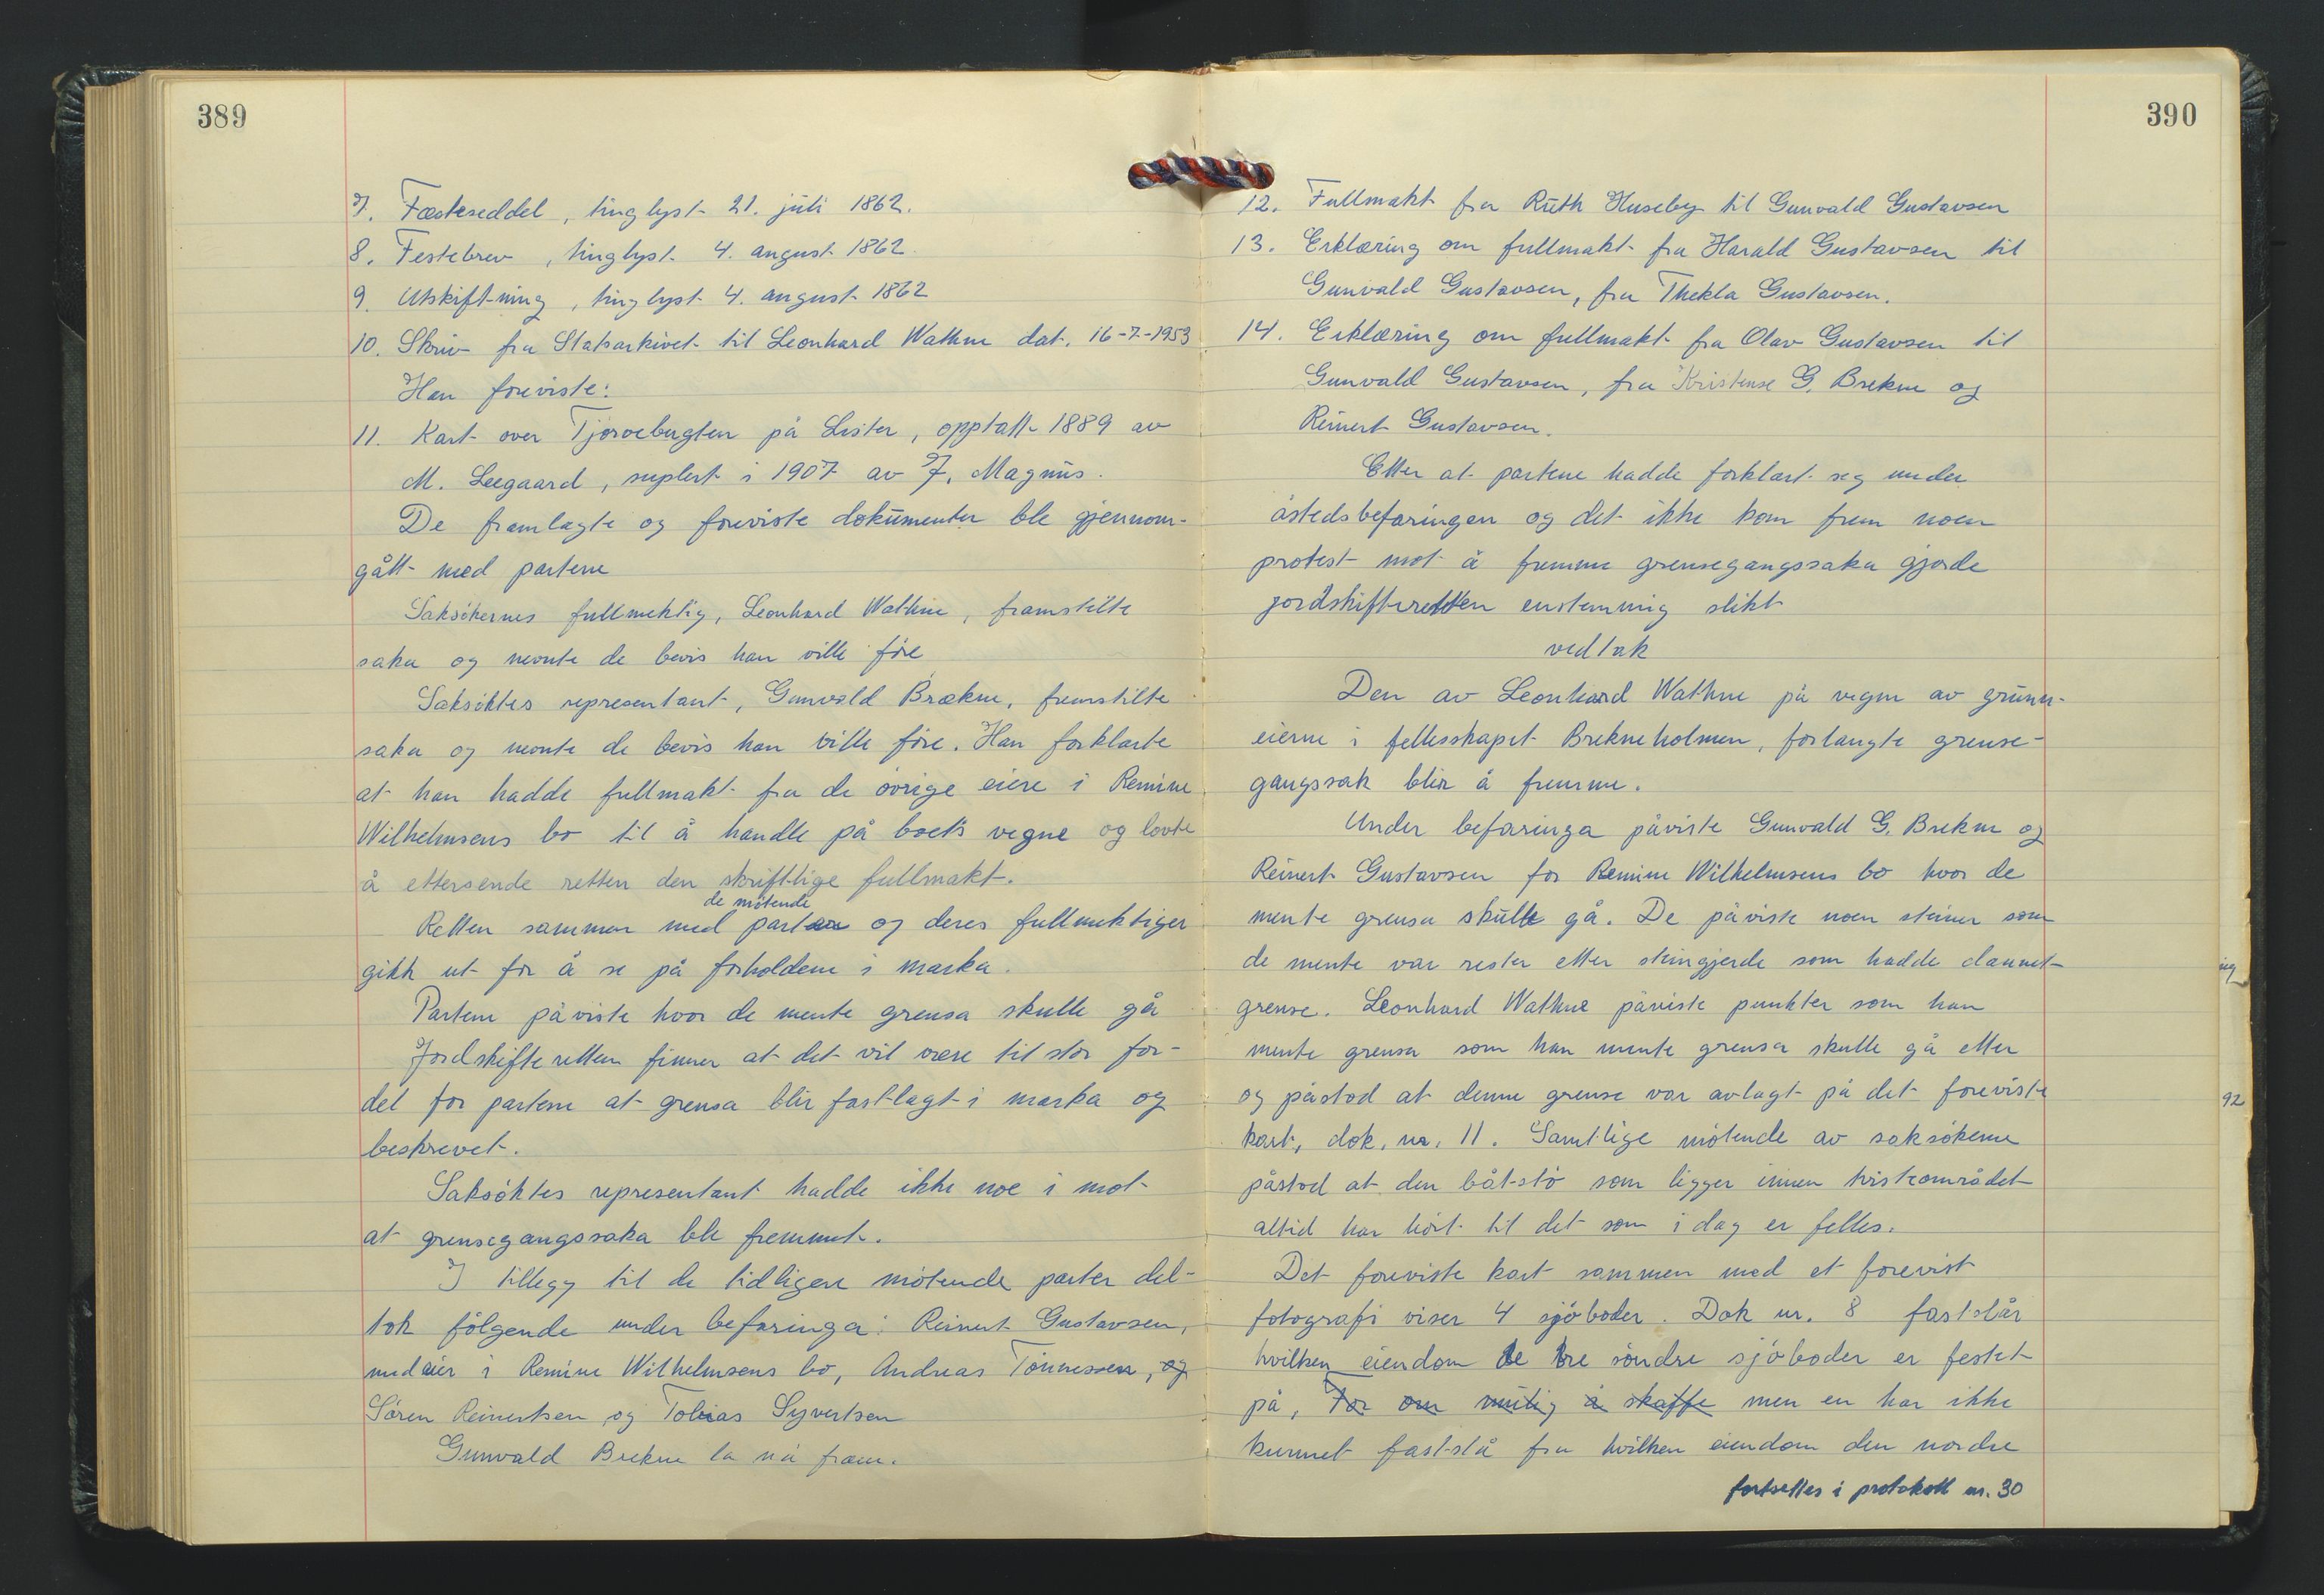 389
7. Fæsteseddel, tinglyst 21. juli 1862.
8. Festebrev, tinglyst 4. august 1862.
9. Utskiftning, tinglyst 4. august 1862
10. Skriv fra Statsarkivet til Leonhard Wathne dat. 16-7-1953
Han foreviste:
11. Kart over Tjørvebugten på Lister, opptatt 1889 av
M. Leegaard, suplert i 1907 av J. Magnus.
De framlagte og foreviste dokumenter ble gjennom-
gått med partene
Saksøkernes fullmektig, Leonhard Wathne, framstilte
saka og nevnte de bevis han ville føre
Saksøktes representant, Gunvald Brækne, fremstilte
saka og nevnte de bevis han ville føre. Han forklarte
at han hadde fullmakt fra de øvrige eiere i Remine
Wilhelmsens bo til å handle på boets vegne og lovte
å ettersende retten den skriftlige fullmakt.
de møtende
Retten sammen med parter og deres fullmektiger
gikk ut for å se på forholdene i marka.
Partene påviste hvor de mente grensa skulle gå
Jordskifteretten finner at det vil være til stor for-
del for partene at grensa blir fastlagt i marka og
beskrevet.
Saksøktes representant hadde ikke noe i mot
at grensegangssaka ble fremmet.
I tillegg til de tidligere møtende parter del-
tok følgende under befaringa: Reinert Gustavsen,
medeier i Remine Wilhelmsens bo, Andreas Tønnessen, og
Søren Reinertsen og Tobias Syvertsen
Gunvald Brekne la nå fram.
390
12. Fullmakt fra Ruth Huseby til Gunvald Gustavsen
13. Erklæring om fullmakt fra Harald Gustavsen til
Gunvald Gustavsen, fra Thekla Gustavsen.
14. Erklæring om fullmakt fra Olav Gustavsen til
Gunvald Gustavsen, fra Kristense G. Brekne og
Reinert Gustavsen.
Etter at partene hadde forklart seg under
åstedsbefaringen og det ikke kom frem noen
protest mot å fremme grensegangssaka gjorde
jordskifteretten enstemmig slikt
vedtak
Den av Leonhard Wathne på vegne av grunn-
eierne i fellesskapet Brekneholmen, forlangte grense-
gangssak blir å fremme.
Under befaringa påviste Gunvald G. Brekne og
Reinert Gustavsen for Remine Wilhelmsens bo hvor de
mente grensa skulle gå. De påviste noen steiner som
de mente var rester etter steingjerde som hadde dannet
grense. Leonhard Wathne påviste punkter som han
mente grensa som han mente grensa skulle gå etter
og påstod at denne grense var avlagt på det foreviste
kart, dok. nr. 11. Samtlige møtende av saksøkerne
påstod at den båtstø som ligger innen tvisteområdet
altid har hørt til det som i dag er felles.
Det foreviste kart sammen med et forevist
fotografi viser 4 sjøboder. Dok nr. 8 fastslår
hvilken eiendom de tre søndre sjøboder er festet
på, For om mulig å skaffe men en har ikke
kunnet fastslå fra hvilken eiendom den nordre
fortsettes i protokoll nr. 30
92